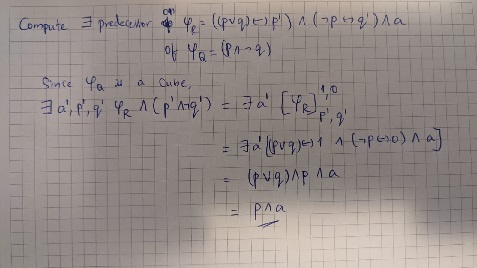 Compute ∃ predecessor on φ_R = ((p∨q)↔p') ∧ (¬p↔q') ∧ a
of φ_Q = (p∧¬q)
Since φ_Q is a cube,
∃a',p',q' φ_R ∧ (p'∧¬q') = ∃a' [φ_R]^{1,0}_{p',q'}
= ∃a' [(p∨q)↔1 ∧ (¬p↔0) ∧ a]
= (p∨q)∧p ∧ a
= p∧a